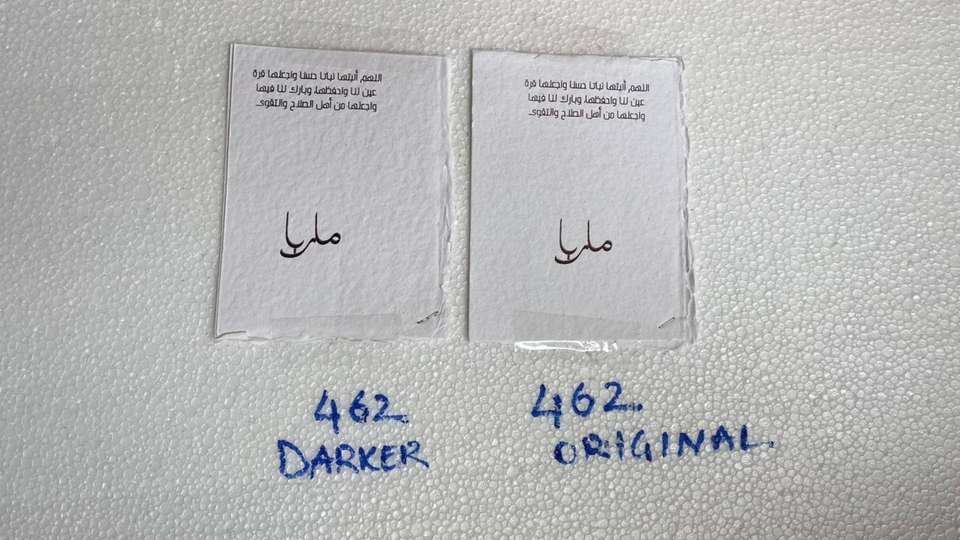 اللهم أنبتها نباتا حسنا واجعلها قرة
عين لنا واحفظها، وبارك لنا فيها
واجعلها من أهل الصلاح والتقوى.
ماريا
462
DARKER
اللهم أنبتها نباتا حسنا واجعلها قرة
عين لنا واحفظها، وبارك لنا فيها
واجعلها من أهل الصلاح والتقوى.
ماريا
462.
ORIGINAL